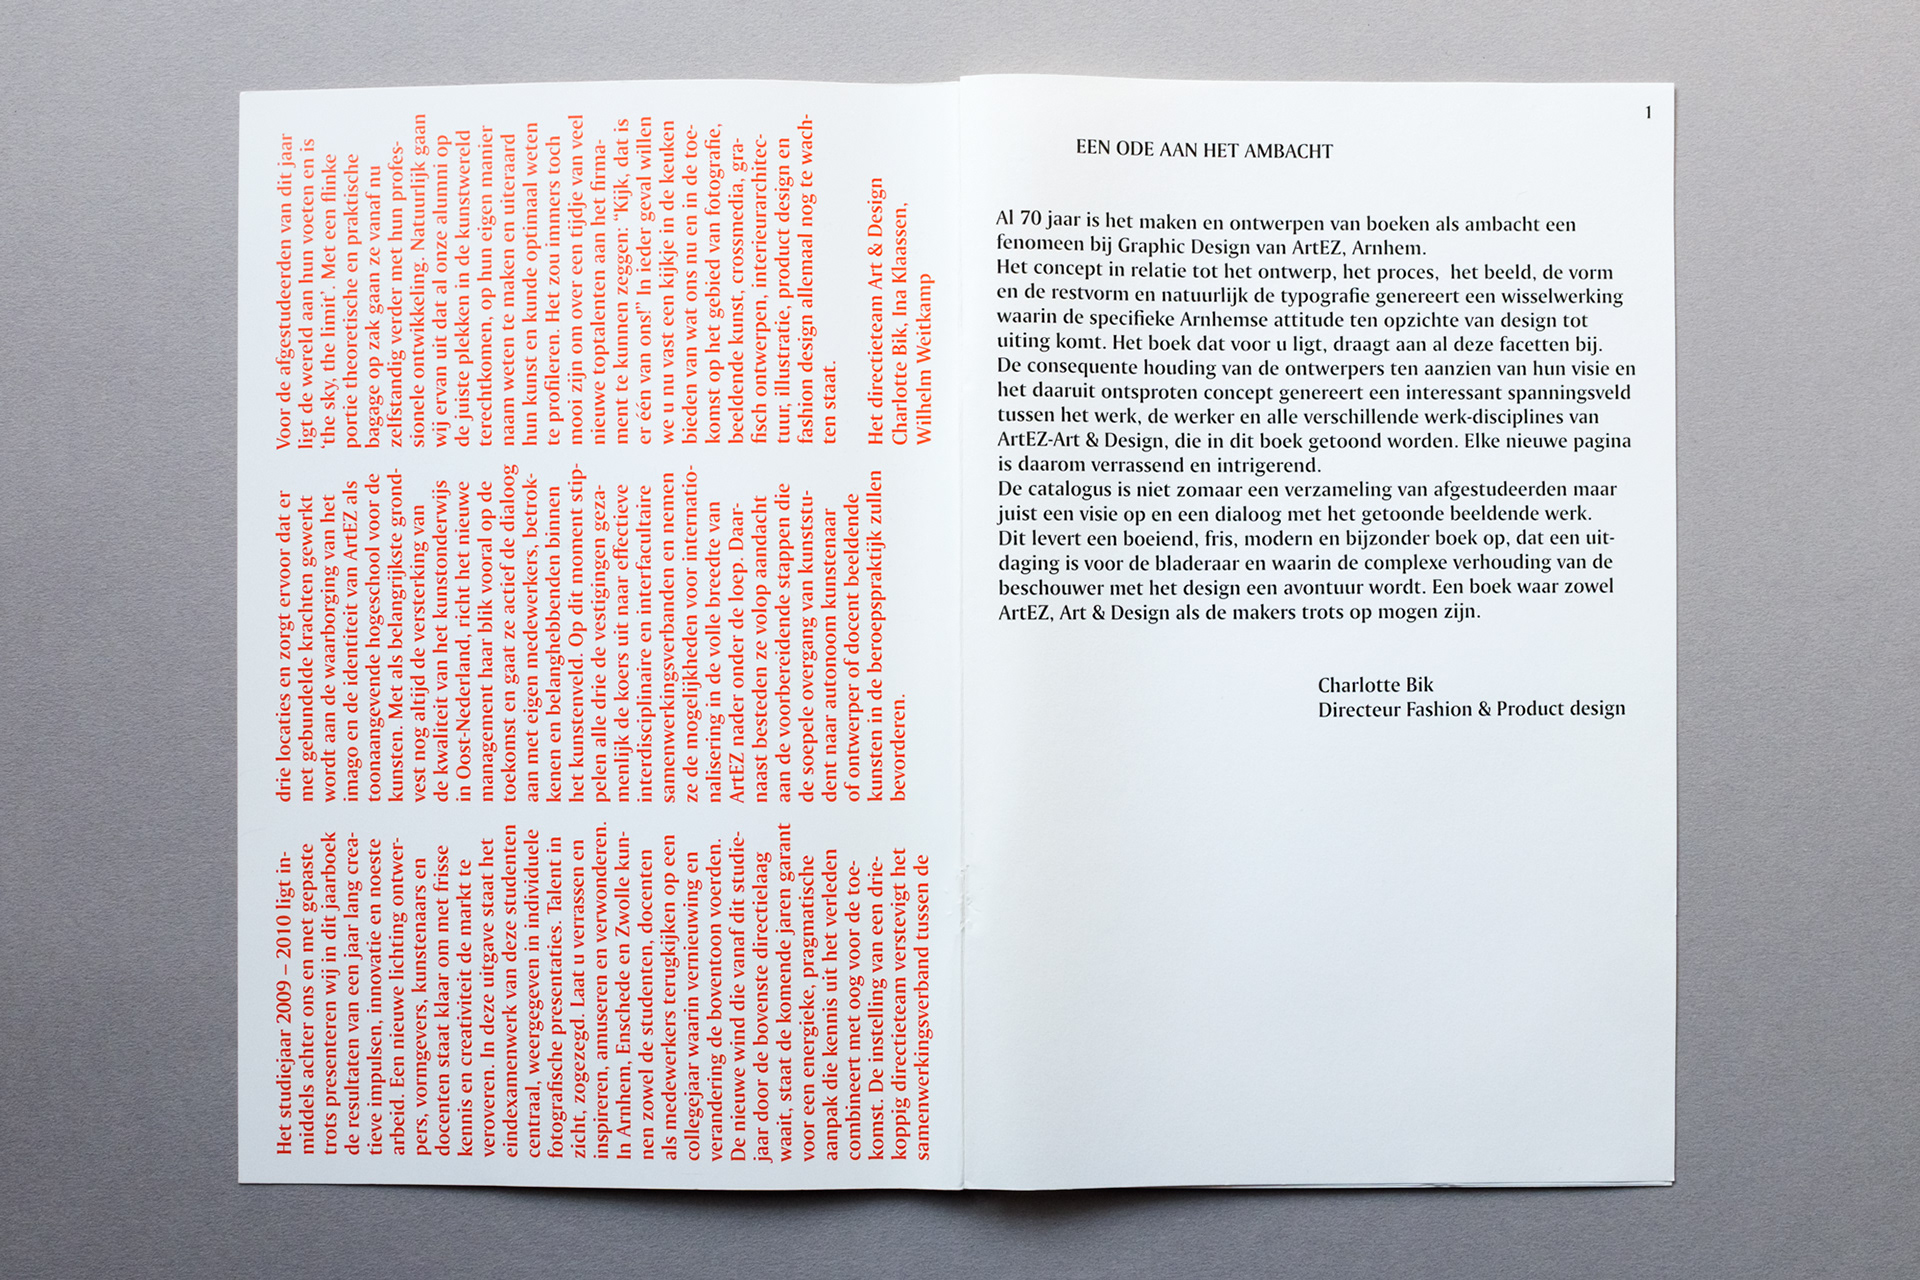 Het studiejaar 2009 – 2010 ligt in-
middels achter ons en met gepaste
trots presenteren wij in dit jaarboek
de resultaten van een jaar lang crea-
tieve impulsen, innovatie en noeste
arbeid. Een nieuwe lichting ontwer-
pers, vormgevers, kunstenaars en
docenten staat klaar om met frisse
kennis en creativiteit de markt te
veroveren. In deze uitgave staat het
eindexamenwerk van deze studenten
centraal, weergegeven in individuele
fotografische presentaties. Talent in
zicht, zogezegd. Laat u verrassen en
inspireren, amuseren en verwonderen.
In Arnhem, Enschede en Zwolle kun-
nen zowel de studenten, docenten
als medewerkers terugkijken op een
collegejaar waarin vernieuwing en
verandering de boventoon voerden.
De nieuwe wind die vanaf dit studie-
jaar door de bovenste directielaag
waait, staat de komende jaren garant
voor een energieke, pragmatische
aanpak die kennis uit het verleden
combineert met oog voor de toe-
komst. De instelling van een drie-
koppig directieteam verstevigt het
samenwerkingsverband tussen de
drie locaties en zorgt ervoor dat er
met gebundelde krachten gewerkt
wordt aan de waarborging van het
imago en de identiteit van ArtEZ als
toonaangevende hogeschool voor de
kunsten. Met als belangrijkste grond-
vest nog altijd de versterking van
de kwaliteit van het kunstonderwijs
in Oost-Nederland, richt het nieuwe
management haar blik vooral op de
toekomst en gaat ze actief de dialoog
aan met eigen medewerkers, betrok-
kenen en belanghebbenden binnen
het kunstenveld. Op dit moment stip-
pelen alle drie de vestigingen geza-
menlijk de koers uit naar effectieve
interdisciplinaire en interfacultaire
samenwerkingsverbanden en nemen
ze de mogelijkheden voor internatio-
nalisering in de volle breedte van
ArtEZ nader onder de loep. Daar-
naast besteden ze volop aandacht
aan de voorbereidende stappen die
de soepele overgang van kunststu-
dent naar autonoom kunstenaar
of ontwerper of docent beeldende
kunsten in de beroepspraktijk zullen
bevorderen.
Voor de afgestudeerden van dit jaar
ligt de wereld aan hun voeten en is
‘the sky, the limit’. Met een flinke
portie theoretische en praktische
bagage op zak gaan ze vanaf nu
zelfstandig verder met hun profes-
sionele ontwikkeling. Natuurlijk gaan
wij ervan uit dat al onze alumni op
de juiste plekken in de kunstwereld
terechtkomen, op hun eigen manier
naam weten te maken en uiteraard
hun kunst en kunde optimaal weten
te profileren. Het zou immers toch
mooi zijn om over een tijdje van veel
nieuwe toptalenten aan het firma-
ment te kunnen zeggen: “Kijk, dat is
er één van ons!” In ieder geval willen
we u nu vast een kijkje in de keuken
bieden van wat ons nu en in de toe-
komst op het gebied van fotografie,
beeldende kunst, crossmedia, gra-
fisch ontwerpen, interieurarchitec-
tuur, illustratie, product design en
fashion design allemaal nog te wach-
ten staat.
Het directieteam Art & Design
Charlotte Bik, Ina Klaassen,
Wilhelm Weitkamp
1
EEN ODE AAN HET AMBACHT
Al 70 jaar is het maken en ontwerpen van boeken als ambacht een
fenomeen bij Graphic Design van ArtEZ, Arnhem.
Het concept in relatie tot het ontwerp, het proces, het beeld, de vorm
en de restvorm en natuurlijk de typografie genereert een wisselwerking
waarin de specifieke Arnhemse attitude ten opzichte van design tot
uiting komt. Het boek dat voor u ligt, draagt aan al deze facetten bij.
De consequente houding van de ontwerpers ten aanzien van hun visie en
het daaruit ontsproten concept genereert een interessant spanningsveld
tussen het werk, de werker en alle verschillende werk-disciplines van
ArtEZ-Art & Design, die in dit boek getoond worden. Elke nieuwe pagina
is daarom verrassend en intrigerend.
De catalogus is niet zomaar een verzameling van afgestudeerden maar
juist een visie op en een dialoog met het getoonde beeldende werk.
Dit levert een boeiend, fris, modern en bijzonder boek op, dat een uit-
daging is voor de bladeraar en waarin de complexe verhouding van de
beschouwer met het design een avontuur wordt. Een boek waar zowel
ArtEZ, Art & Design als de makers trots op mogen zijn.
Charlotte Bik
Directeur Fashion & Product design